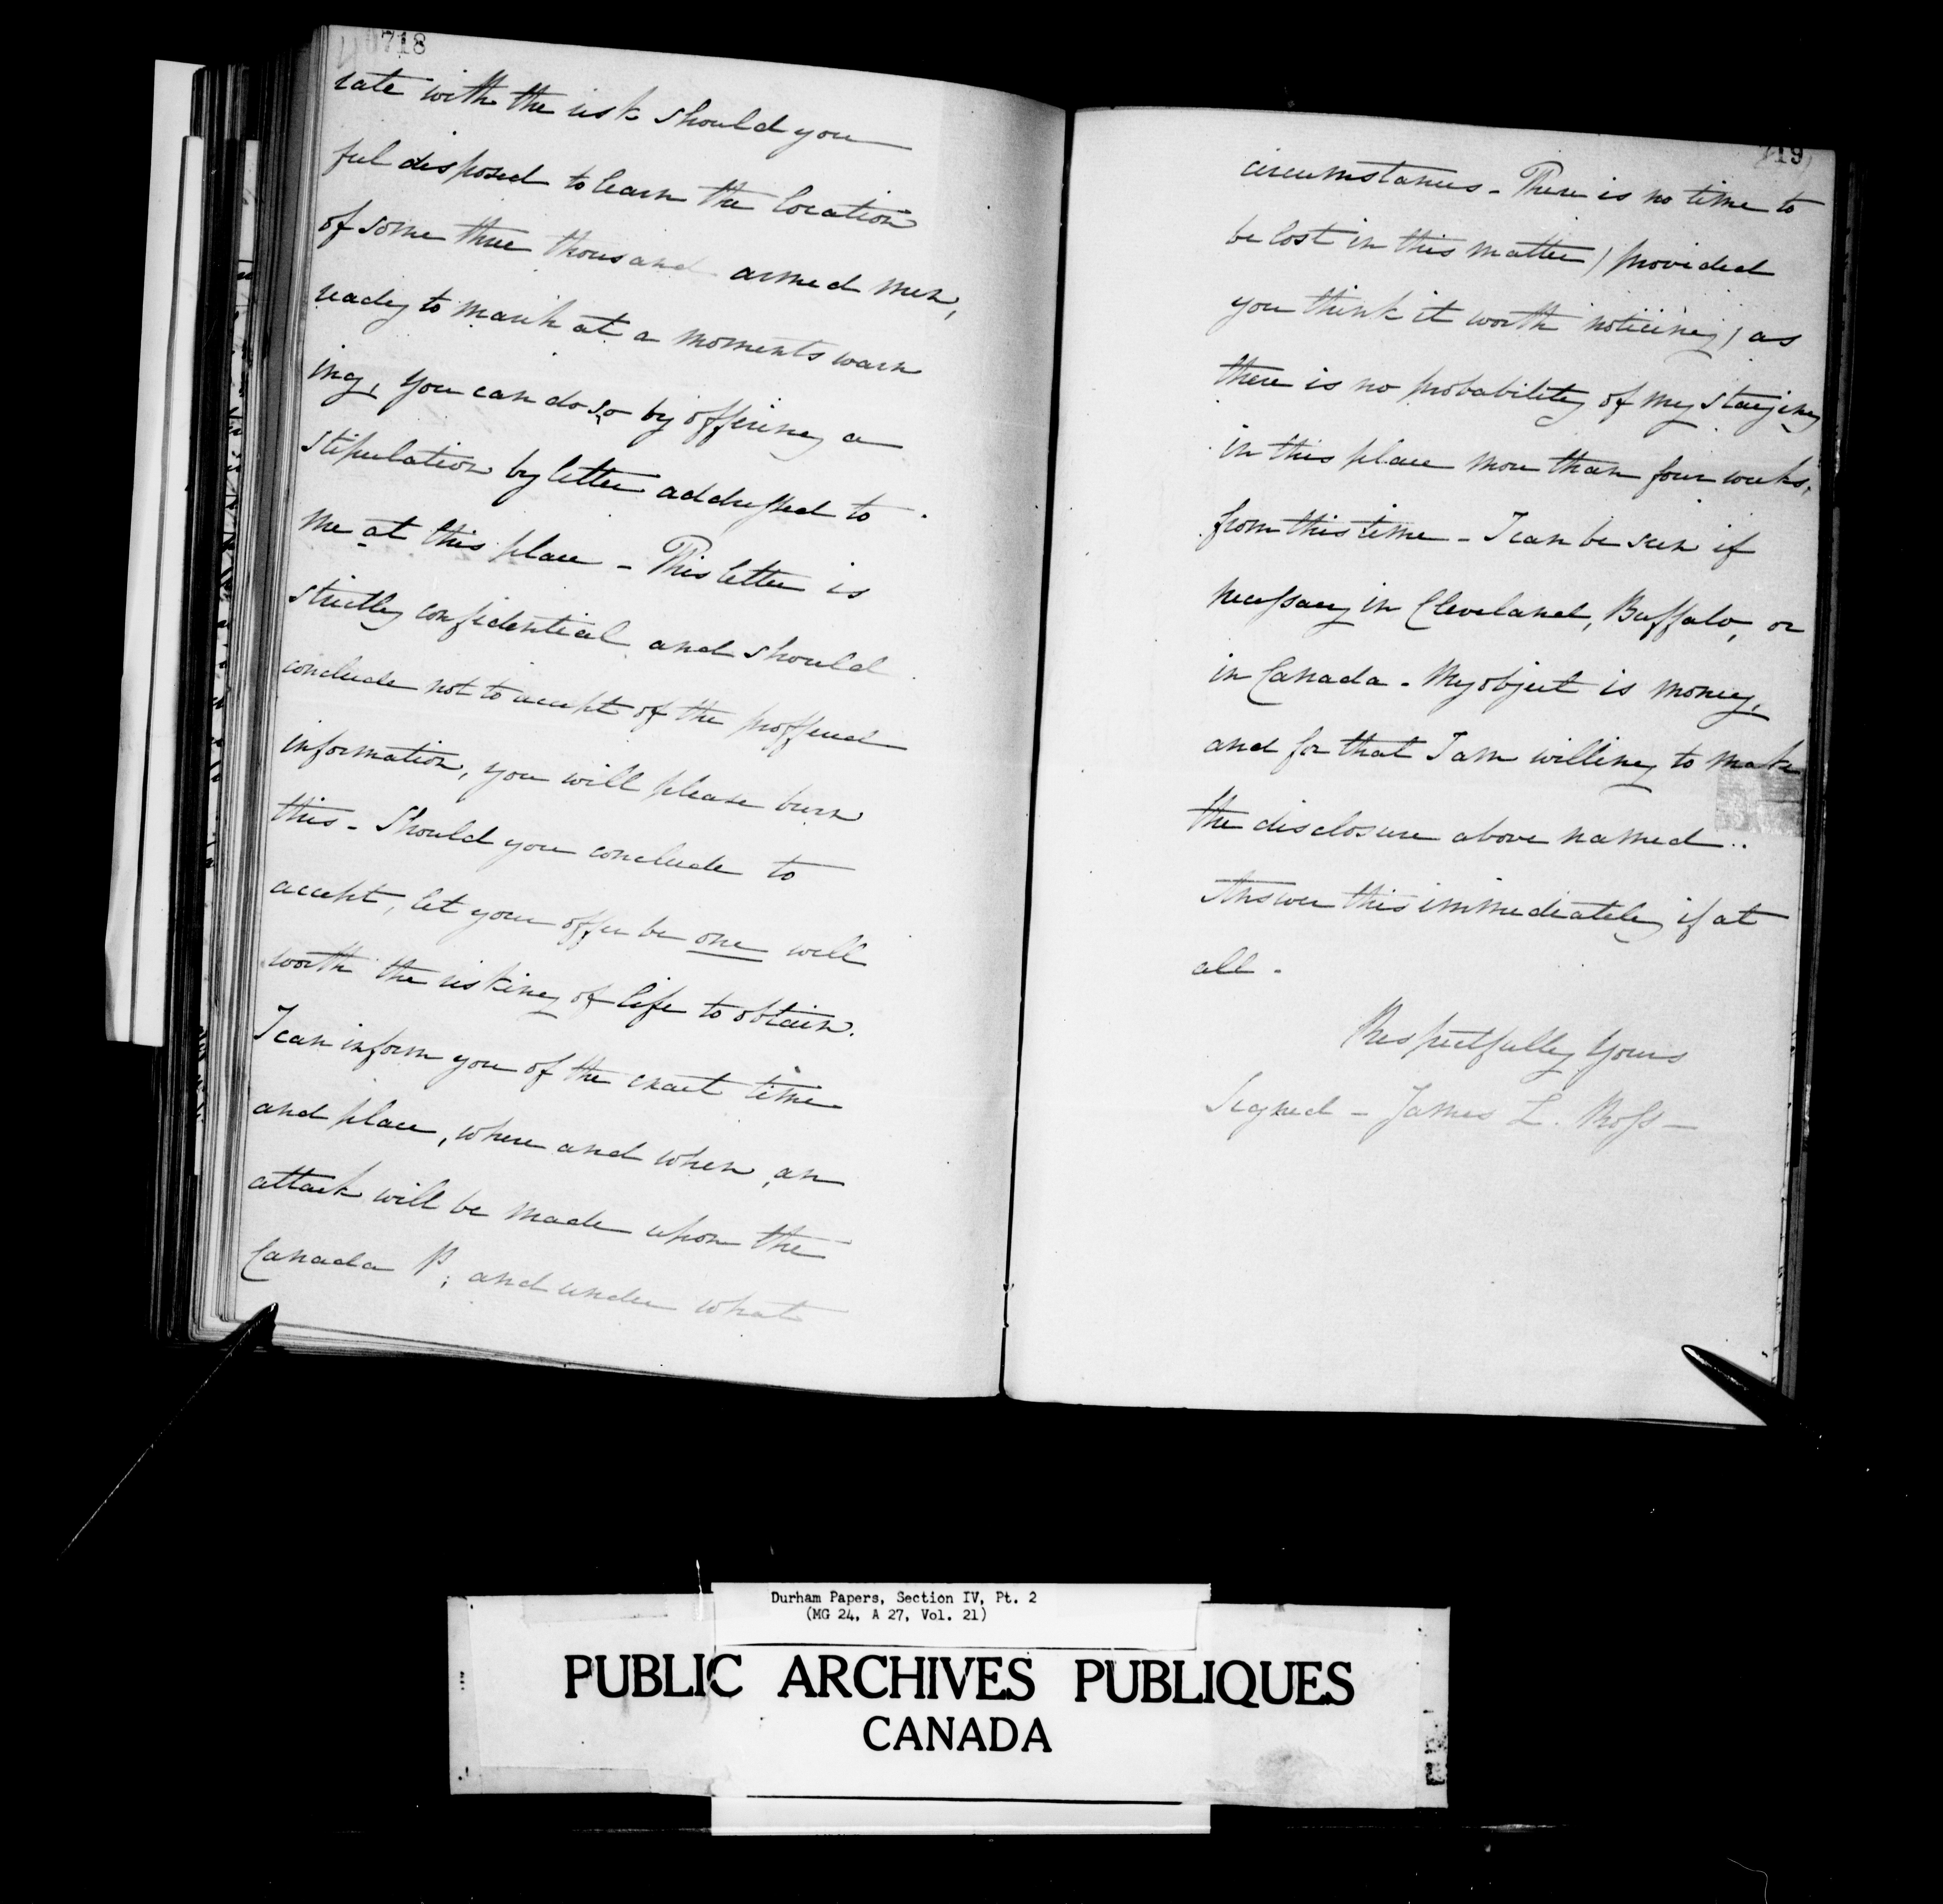 718
rate with the risk should you
feel disposed to learn the location
of some three thousand armed men,
ready to march at a moments warn
ing, you can do so by offering a
stipulation by letter addressed to
me at this place - This letter is
strictly confidential and should
conclude not to accept of the proffered
information, you will please burn
this - Should you conclude to
accept, let your offer be one well
worth the risking of life to obtain.
I can inform you of the exact time
and place, where and when, an
attack will be made upon the
Canada P; and under what
719
circumstances - There is no time to
be lost in this matter) provided
you think it worth noticing) as
there is no probability of my staying
in this place more than four weeks,
from this time - I can be seen if
necessary in Cleveland, Buffalo, or
in Canada - My object is money,
and for that I am willing to make
the disclosure above named ..
Answer this immediately if at
all -
Respectfully Yours
Signed - James L. Moss -
Durham Papers, Section IV, Pt. 2
(MG 24, A 27, Vol. 21)
PUBLIC ARCHIVES PUBLIQUES
CANADA